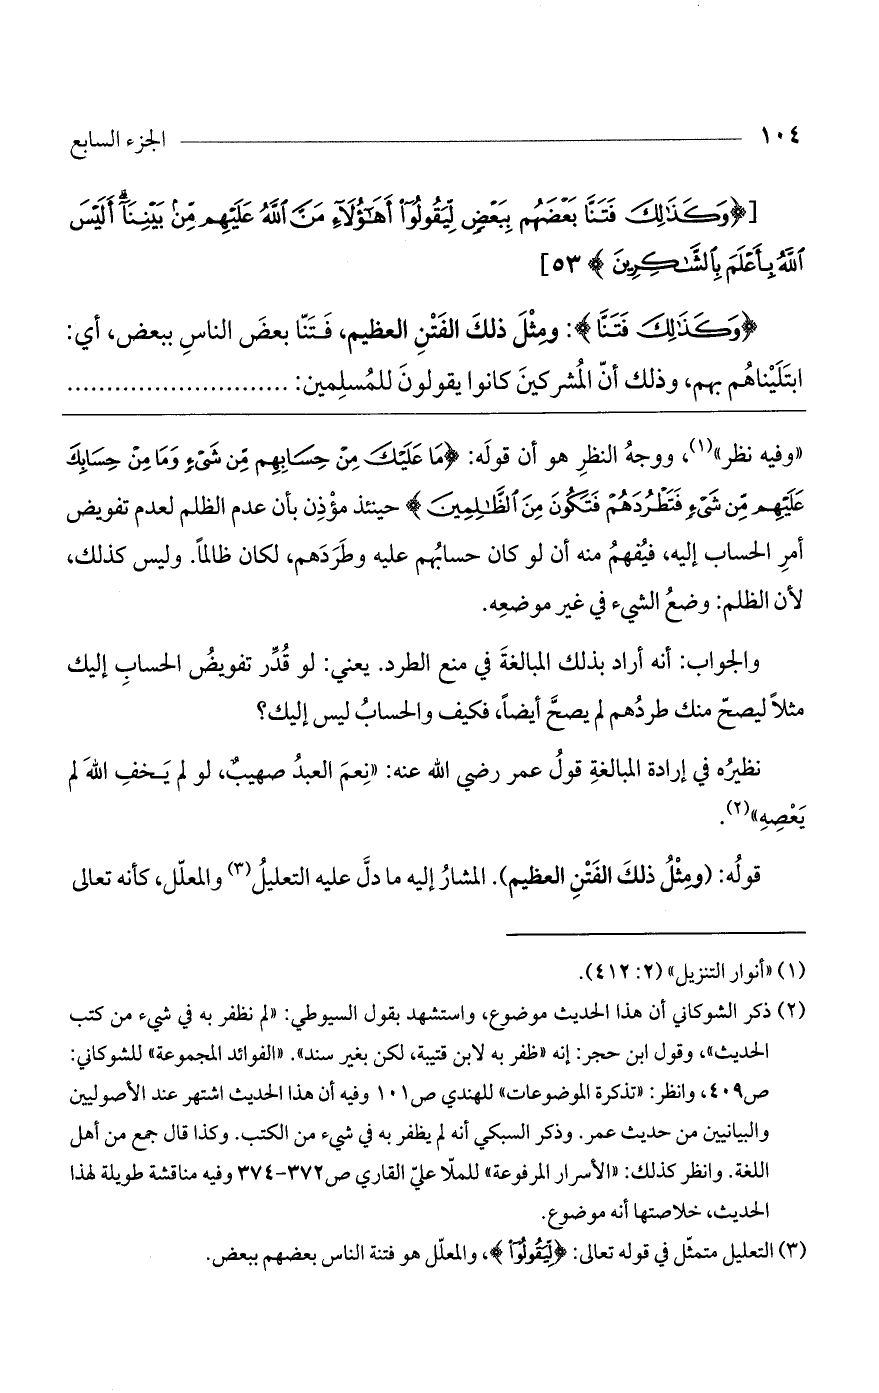 ١٠٤ الجزء السابع
[﴿وَكَذَٰلِكَ فَتَنَّا بَعْضَهُم بِبَعْضٍ لِّيَقُولُوٓا۟ أَهَٰٓؤُلَآءِ مَنَّ ٱللَّهُ عَلَيْهِم مِّنۢ بَيْنِنَآ ۗ أَلَيْسَ
ٱللَّهُ بِأَعْلَمَ بِٱلشَّٰكِرِينَ﴾ ٥٣]
﴿وَكَذَٰلِكَ فَتَنَّا﴾: ومِثْلَ ذلكَ الفَتْنِ العظيم، فَتَنّا بعضَ الناسِ ببعض، أي:
ابتَلَيْناهُم بهم، وذلك أنّ المُشركينَ كانوا يقولونَ للمُسلِمين: ............................
«وفيه نظر»(١)، ووجهُ النظرِ هو أن قولَه: ﴿مَا عَلَيْكَ مِنْ حِسَابِهِم مِّن شَىْءٍ وَمَا مِنْ حِسَابِكَ
عَلَيْهِم مِّن شَىْءٍ فَتَطْرُدَهُمْ فَتَكُونَ مِنَ ٱلظَّٰلِمِينَ﴾ حينئذ مؤْذِن بأن عدم الظلم لعدم تفويض
أمرِ الحساب إليه، فيُفهمُ منه أن لو كان حسابُهم عليه وطَرَدَهم، لكان ظالماً. وليس كذلك،
لأن الظلم: وضعُ الشيء في غير موضعِه.
والجواب: أنه أراد بذلك المبالغةَ في منع الطرد. يعني: لو قُدِّر تفويضُ الحسابِ إليك
مثلاً ليصحّ منك طردُهم لم يصحَّ أيضاً، فكيف والحسابُ ليس إليك؟
نظيرُه في إرادة المبالغةِ قولُ عمر رضي الله عنه: «نِعمَ العبدُ صهيبٌ، لو لم يَخفِ اللهَ لم
يَعْصِهِ»(٢).
قولُه: (ومِثْلُ ذلكَ الفَتْنِ العظيم). المشارُ إليه ما دلَّ عليه التعليلُ(٣) والمعلّل، كأنه تعالى
(١) «أنوار التنزيل» (٢: ٤١٢).
(٢) ذكر الشوكاني أن هذا الحديث موضوع، واستشهد بقول السيوطي: «لم نظفر به في شيء من كتب
الحديث»، وقول ابن حجر: إنه «ظفر به لابن قتيبة، لكن بغير سند». «الفوائد المجموعة» للشوكاني:
ص٤٠٩، وانظر: «تذكرة الموضوعات» للهندي ص١٠١ وفيه أن هذا الحديث اشتهر عند الأصوليين
والبيانيين من حديث عمر. وذكر السبكي أنه لم يظفر به في شيء من الكتب. وكذا قال جمع من أهل
اللغة. وانظر كذلك: «الأسرار المرفوعة» للملّا عليّ القاري ص٣٧٢-٣٧٤ وفيه مناقشة طويلة لهذا
الحديث، خلاصتها أنه موضوع.
(٣) التعليل متمثّل في قوله تعالى: ﴿لِّيَقُولُوٓا۟﴾، والمعلّل هو فتنة الناس بعضهم ببعض.